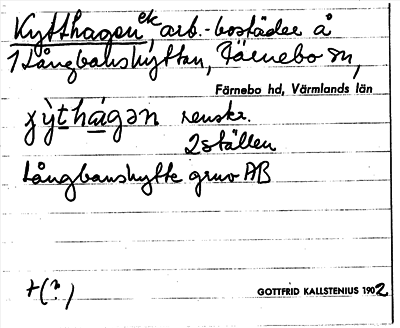 Kytthagen, ek arb.-bostäder å
1 Långbanshyttan, Färnebo sn,
Färnebo hd, Värmlands län
renskr.
2 ställen
Långbanshytte gruv AB
+(?)
GOTTFRID KALLSTENIUS 1902